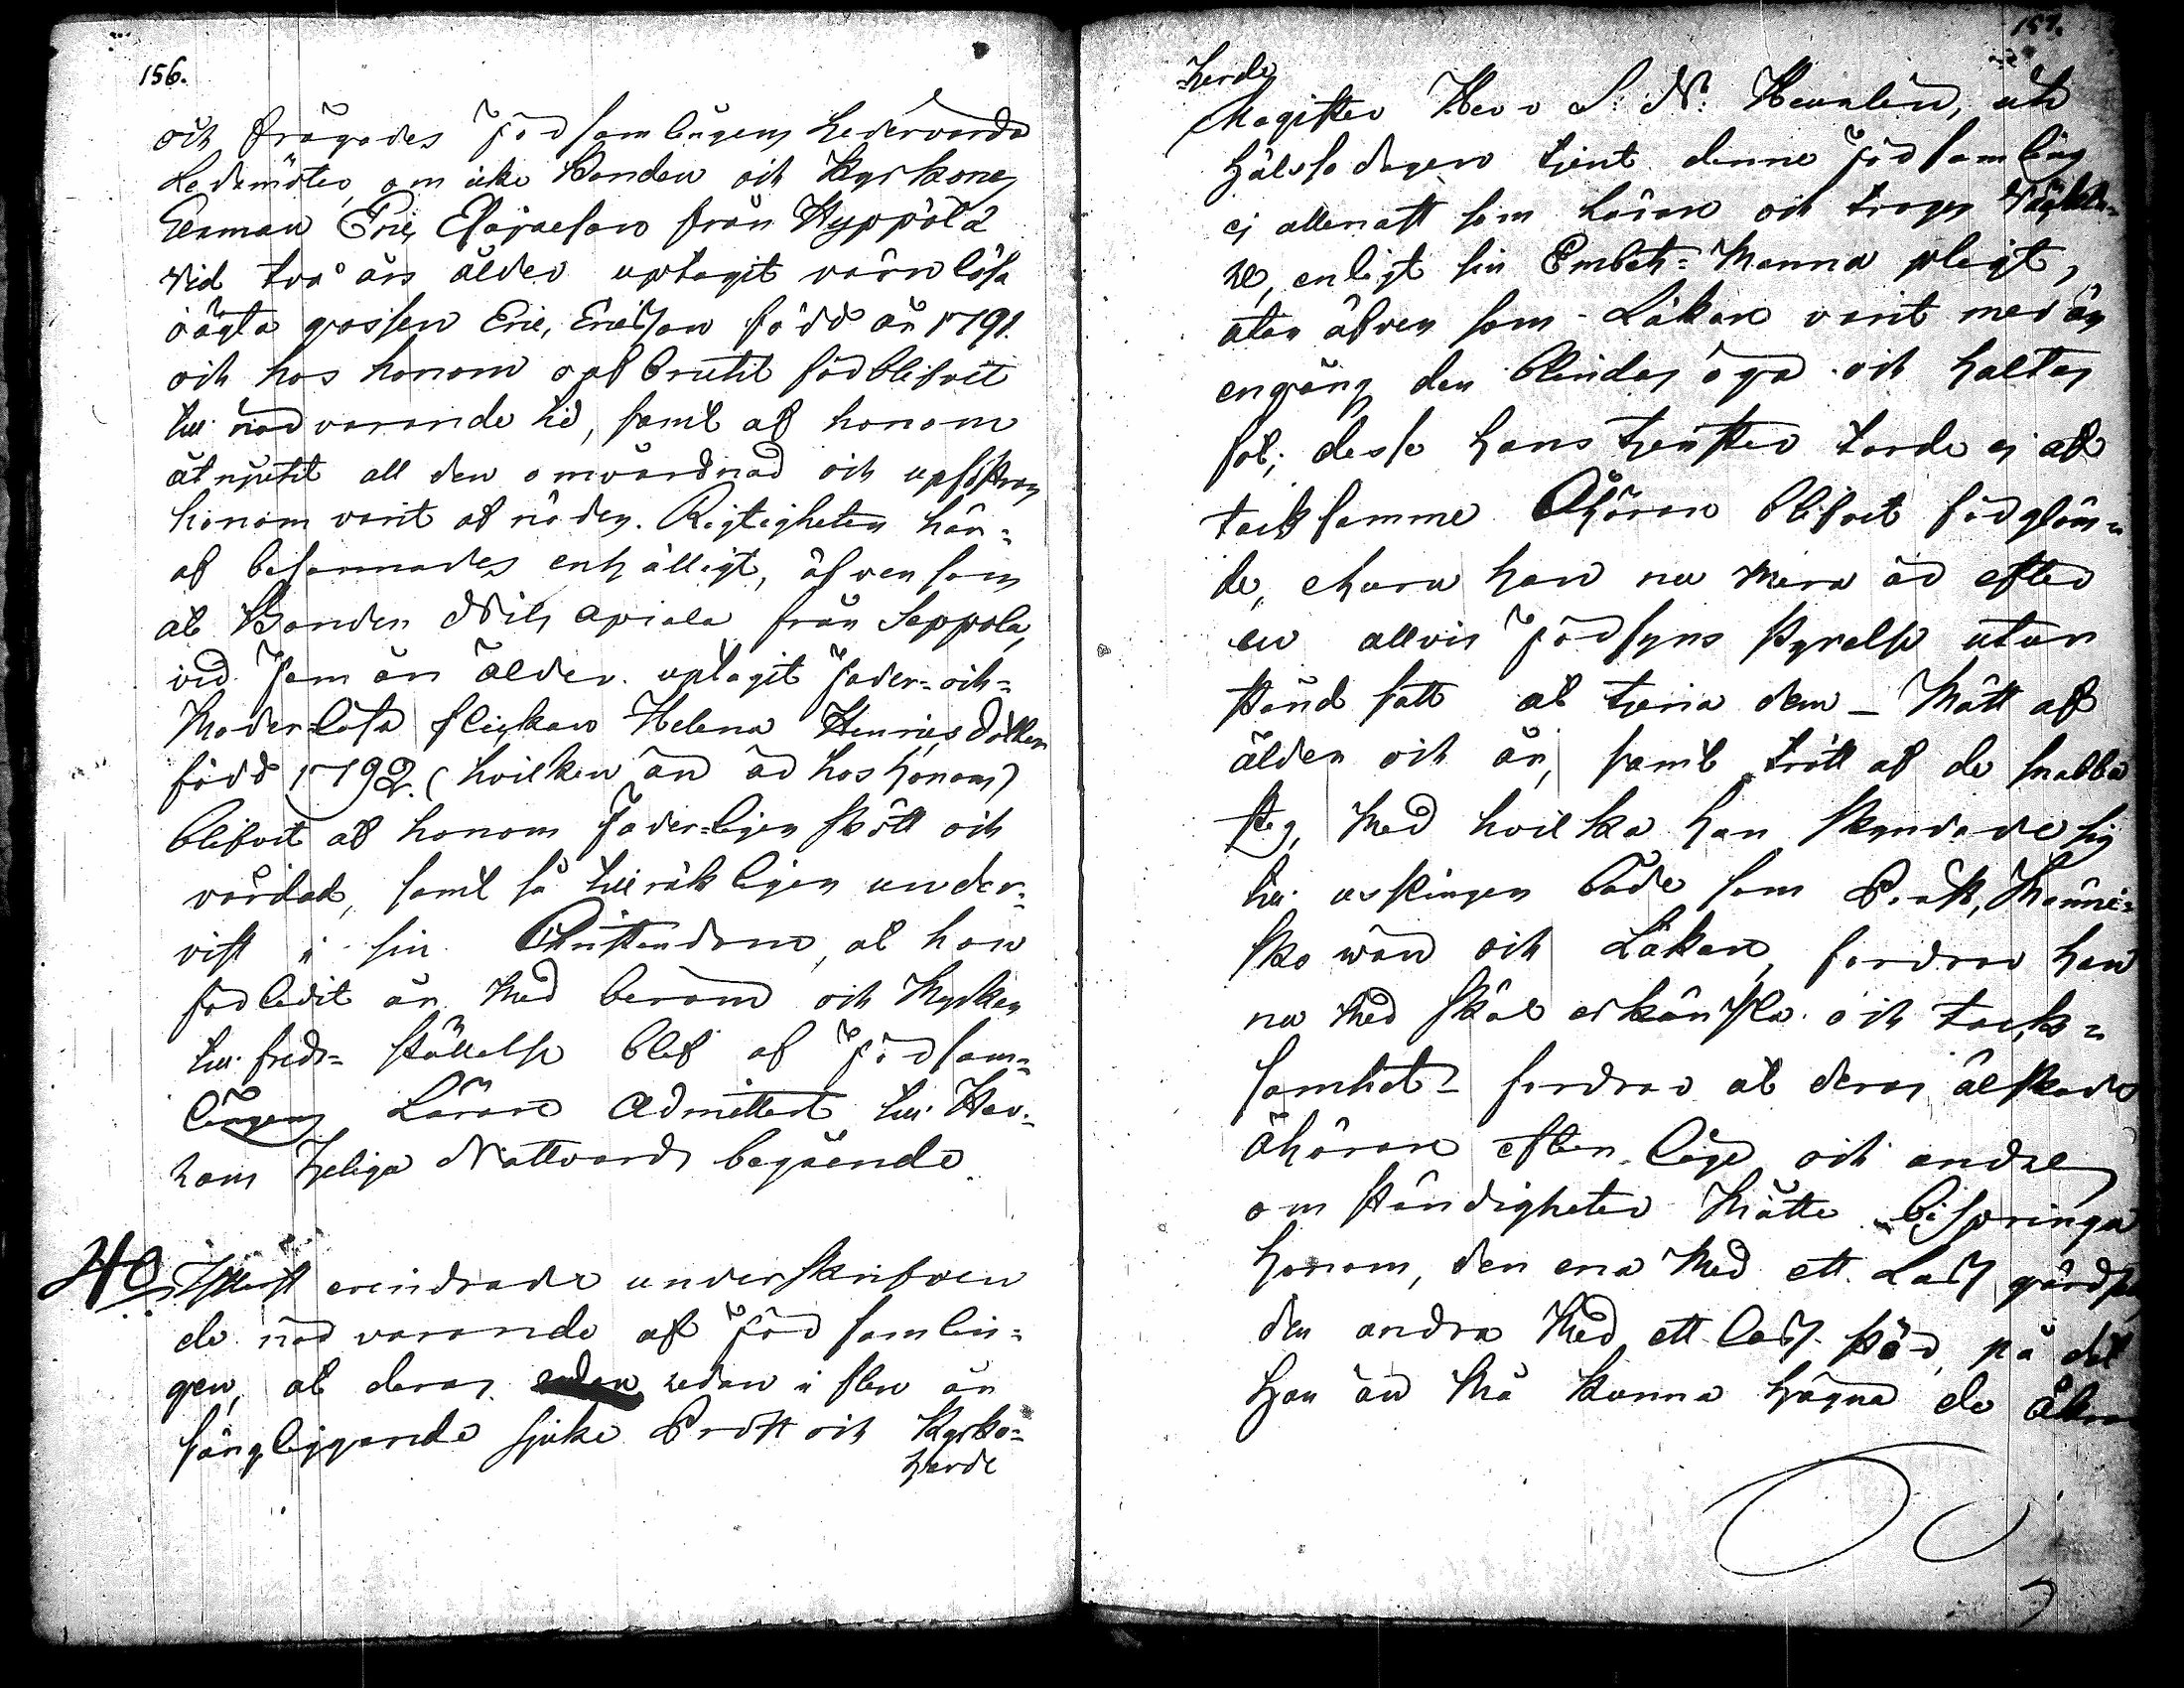 156.
och frågades Församlingens hedervarda
Ledamöter, om icke Bonden och Kyrkones
Exman Eric Esaiaeson från Hyppälä
vid två års ålder uptagit värnlösa
oägta gossen Eric Ericsson född år 1791.
och hos honom oafbrutit förblifvit
till närvarande tid, samt af honom
åtnjutit all den omvårdnad och upfostran
honom varit af nöden. Rigtigheten här=
af besannades enhälligt, äfven som
at Bonden Nils Apiala från Seppola,
vid fem års ålder uptagit fader= och=
Moderlösa flickan Helena Henricsdotter
född 1792. (hvilken än är hos honom)
blifvit af honom faderligen skött och
vårdad, samt så tillräkligen under=
vist i sin Christendom, at hon
förledit år med beröm och Mycken
tillfreds= ställelse blef af Församl=
lingens Lärare Admitterd till Her=
rans Heliga Nattvards begående.
4o Ytterst erindrade underskrifven
de närvarande af Församlin=
gen, at deras redan i flere år
sängliggande sjuke Prost och Kyrko=
herde
157.
herde
Magister Herr S. N. , uti
hälsodagen tjent denne Församling
ej allenast som Lärare och trogen Väckta=
re, enligt sin Embets= Manna pligt,
utan äfven som Läkare varit mer än
engång den blindas öga och haltas
fot; desse hans tjenster torde ej af
tacksamme Åhörare blifvit förglöm=
de, ehuru han nu mera är efter
en allvis Försyns styrelse utan
stånd satt at tjena dem _ Mätt af
ålder och år, samt trött af de snabba
steg, Med hvilka han skyndade sig
till uslingen både som Prest, Menni=
sko wän och Läkare, fordrar han
nu Med skäl erkänsla och tack=
samhet= fordrar at deras älskade
åhörare efter läge och andre
omständigheter Måtte bispringa
honom, den ena Med ett Lass gärdsle,
den andra Med ett lass stör, på det
han än Må kunna hägna de åkrar